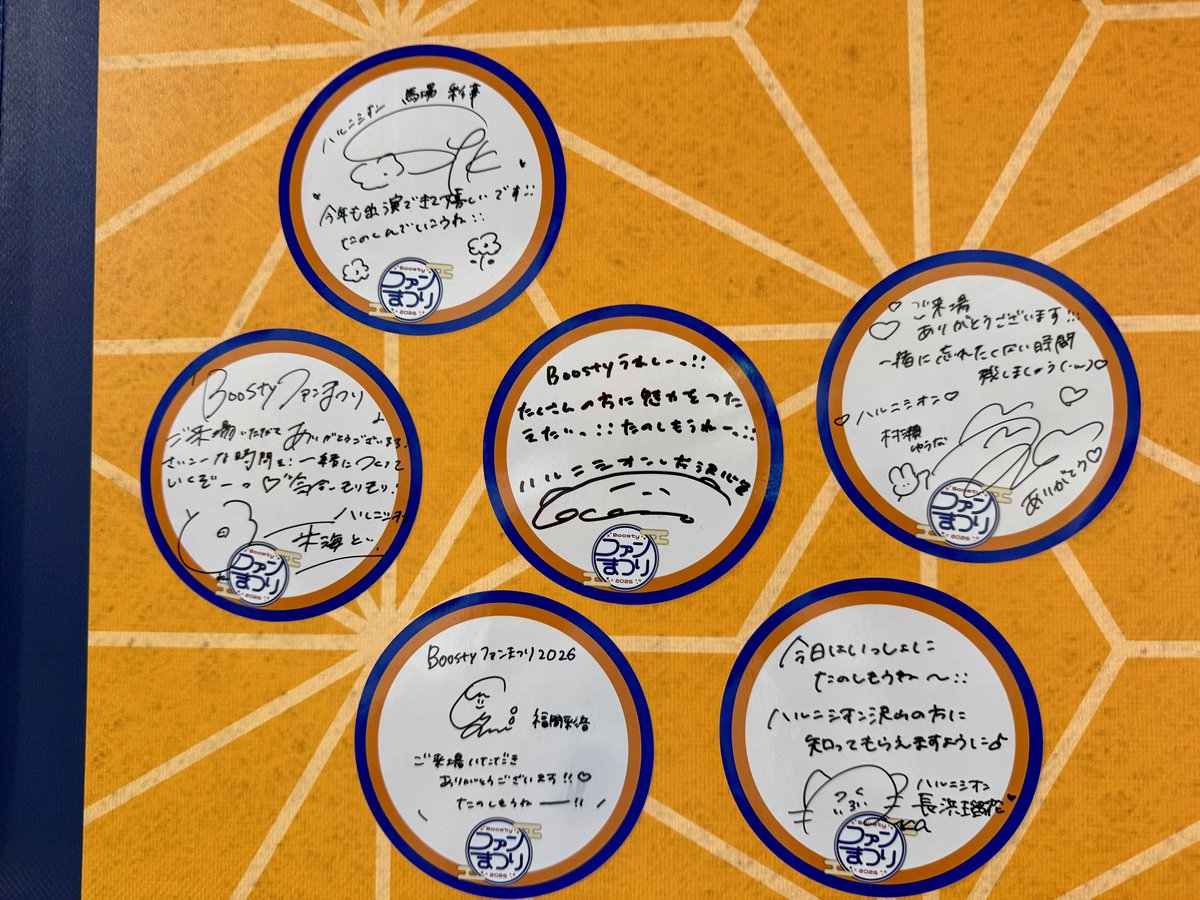 ハルニシオン 馬場 彩華
今年も出演できて嬉しいです!!
たのしんでいこうね!!
Boosty
ファン
まつり
2026
Boostyファンまつり
ご来場いただきありがとうございます♪
さいこーな時間を!一緒につくって
いくぞーっ♡気合もりもり!
ハルニシオン
Boosty
ファン
まつり
2026
Boostyうれしーっ!!
たくさんの方に魅力をつた
えたいっ!! たのしもうねーっ!!
ハルニシオン
Boosty
ファン
まつり
2026
ご来場
ありがとうございます!!!
一緒に忘れたくない時間
残しましょう(・ω・)♡
ハルニシオン♡
村瀬
ゆうな
ありがとう♡
Boosty
ファン
まつり
2026
Boostyファンまつり2026
ご来場いただき
ありがとうございます!!♡
たのしもうねー!!
Boosty
ファン
まつり
2026
今日はいっしょに
たのしもうね〜!!
ハルニシオン沢山の方に
知ってもらえますように♪
ハルニシオン
Boosty
ファン
まつり
2026